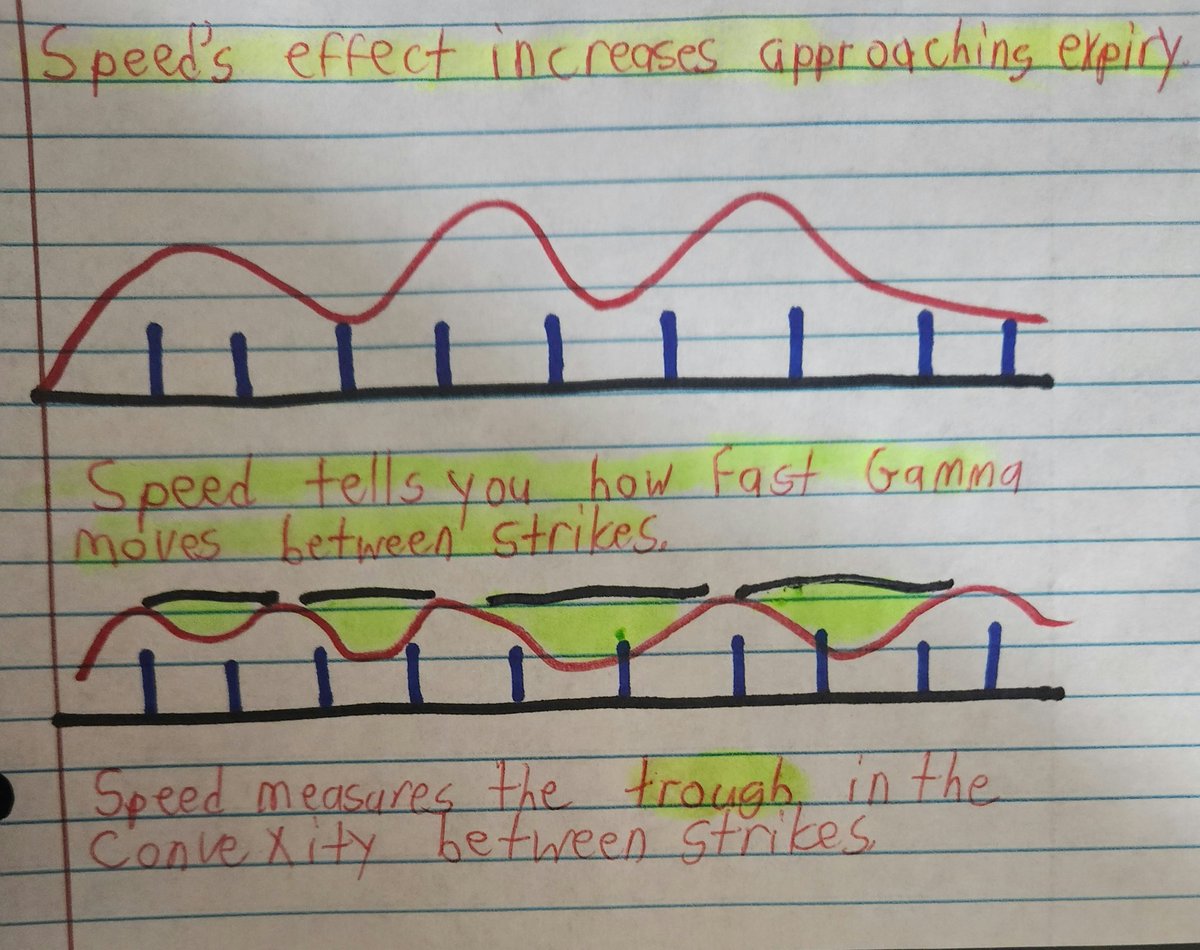 Speed's effect increases approaching expiry.
Speed tells you how fast Gamma
moves between strikes.
Speed measures the trough in the
Convexity between strikes.